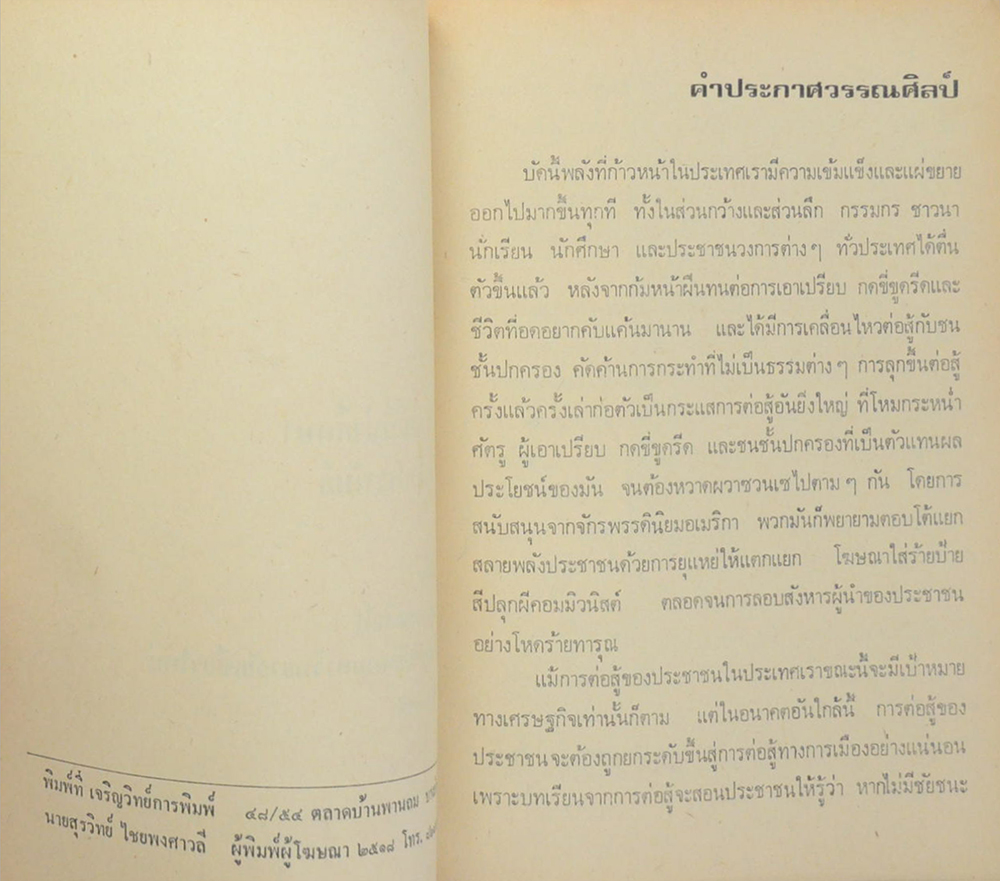 พิมพ์ที่ เจริญวิทย์การพิมพ์ ๔๘/๕๔ ตลาดบ้านพานถม
นายสุรวิทย์ ไชยพงศาวลี ผู้พิมพ์ผู้โฆษณา ๒๕๑๘ โทร.
คำประกาศวรรณศิลป์
บัดนี้พลังที่ก้าวหน้าในประเทศเรามีความเข้มแข็งและแผ่ขยาย
ออกไปมากขึ้นทุกที ทั้งในส่วนกว้างและส่วนลึก กรรมกร ชาวนา
นักเรียน นักศึกษา และประชาชนวงการต่างๆ ทั่วประเทศได้ตื่น
ตัวขึ้นแล้ว หลังจากก้มหน้าฝืนทนต่อการเอาเปรียบ กดขี่ขูดรีดและ
ชีวิตที่อดอยากคับแค้นมานาน และได้มีการเคลื่อนไหวต่อสู้กับชน
ชั้นปกครอง คัดค้านการกระทำที่ไม่เป็นธรรมต่างๆ การลุกขึ้นต่อสู้
ครั้งแล้วครั้งเล่าก่อตัวเป็นกระแสการต่อสู้อันยิ่งใหญ่ ที่โหมกระหน่ำ
ศัตรู ผู้เอาเปรียบ กดขี่ขูดรีด และชนชั้นปกครองที่เป็นตัวแทนผล
ประโยชน์ของมัน จนต้องหวาดผวาซวนเซไปตามๆ กัน โดยการ
สนับสนุนจากจักรพรรดินิยมอเมริกา พวกมันก็พยายามตอบโต้แยก
สลายพลังประชาชนด้วยการยุแหย่ให้แตกแยก โฆษณาใส่ร้ายป้าย
สีปลุกผีคอมมิวนิสต์ ตลอดจนการลอบสังหารผู้นำของประชาชน
อย่างโหดร้ายทารุณ
แม้การต่อสู้ของประชาชนในประเทศเราขณะนี้จะมีเป้าหมาย
ทางเศรษฐกิจเท่านั้นก็ตาม แต่ในอนาคตอันใกล้นี้ การต่อสู้ของ
ประชาชนจะต้องถูกยกระดับขึ้นสู่การต่อสู้ทางการเมืองอย่างแน่นอน
เพราะบทเรียนจากการต่อสู้จะสอนประชาชนให้รู้ว่า หากไม่มีชัยชนะ